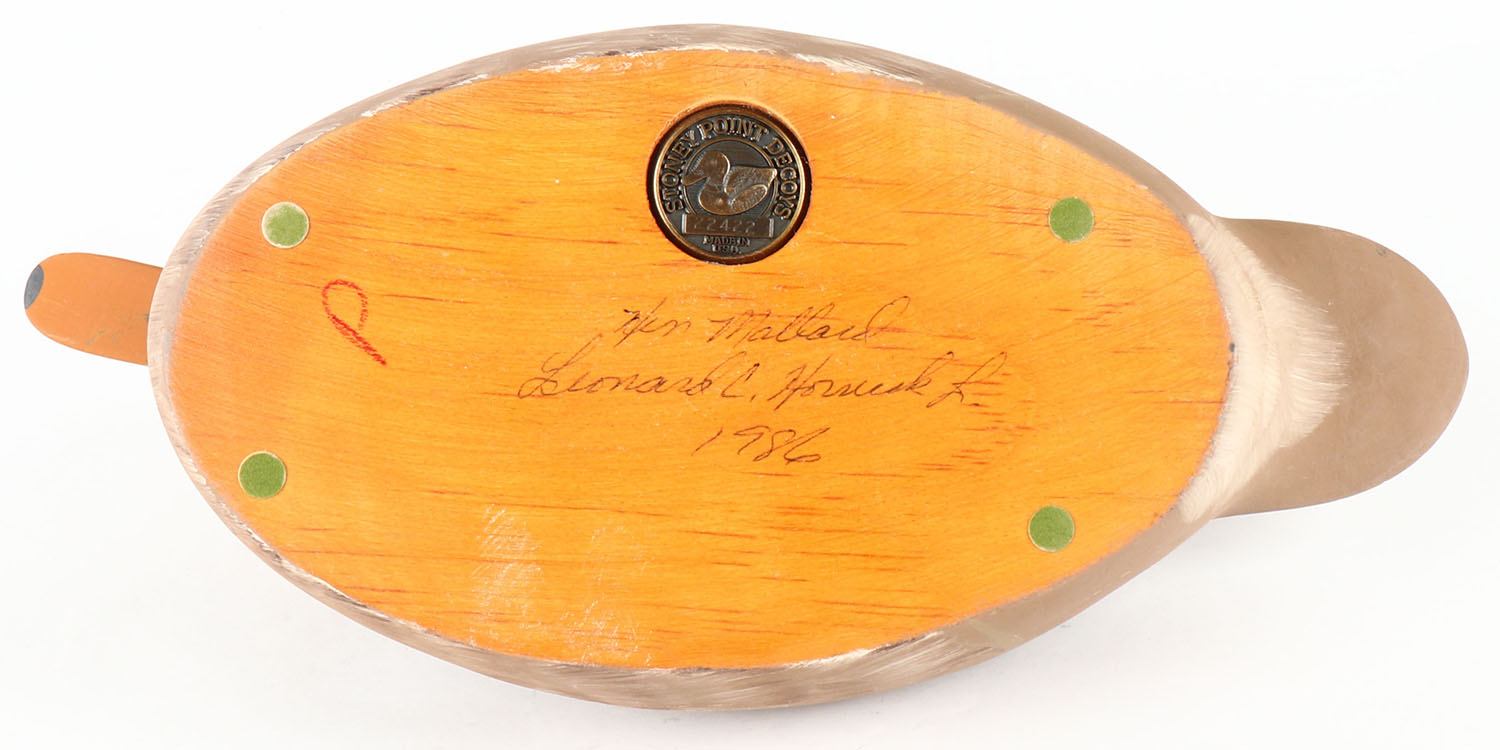 STONEY POINT DECOYS
22422
MADE IN
U.S.A.
Hen Mallard
Leonard C.
1986